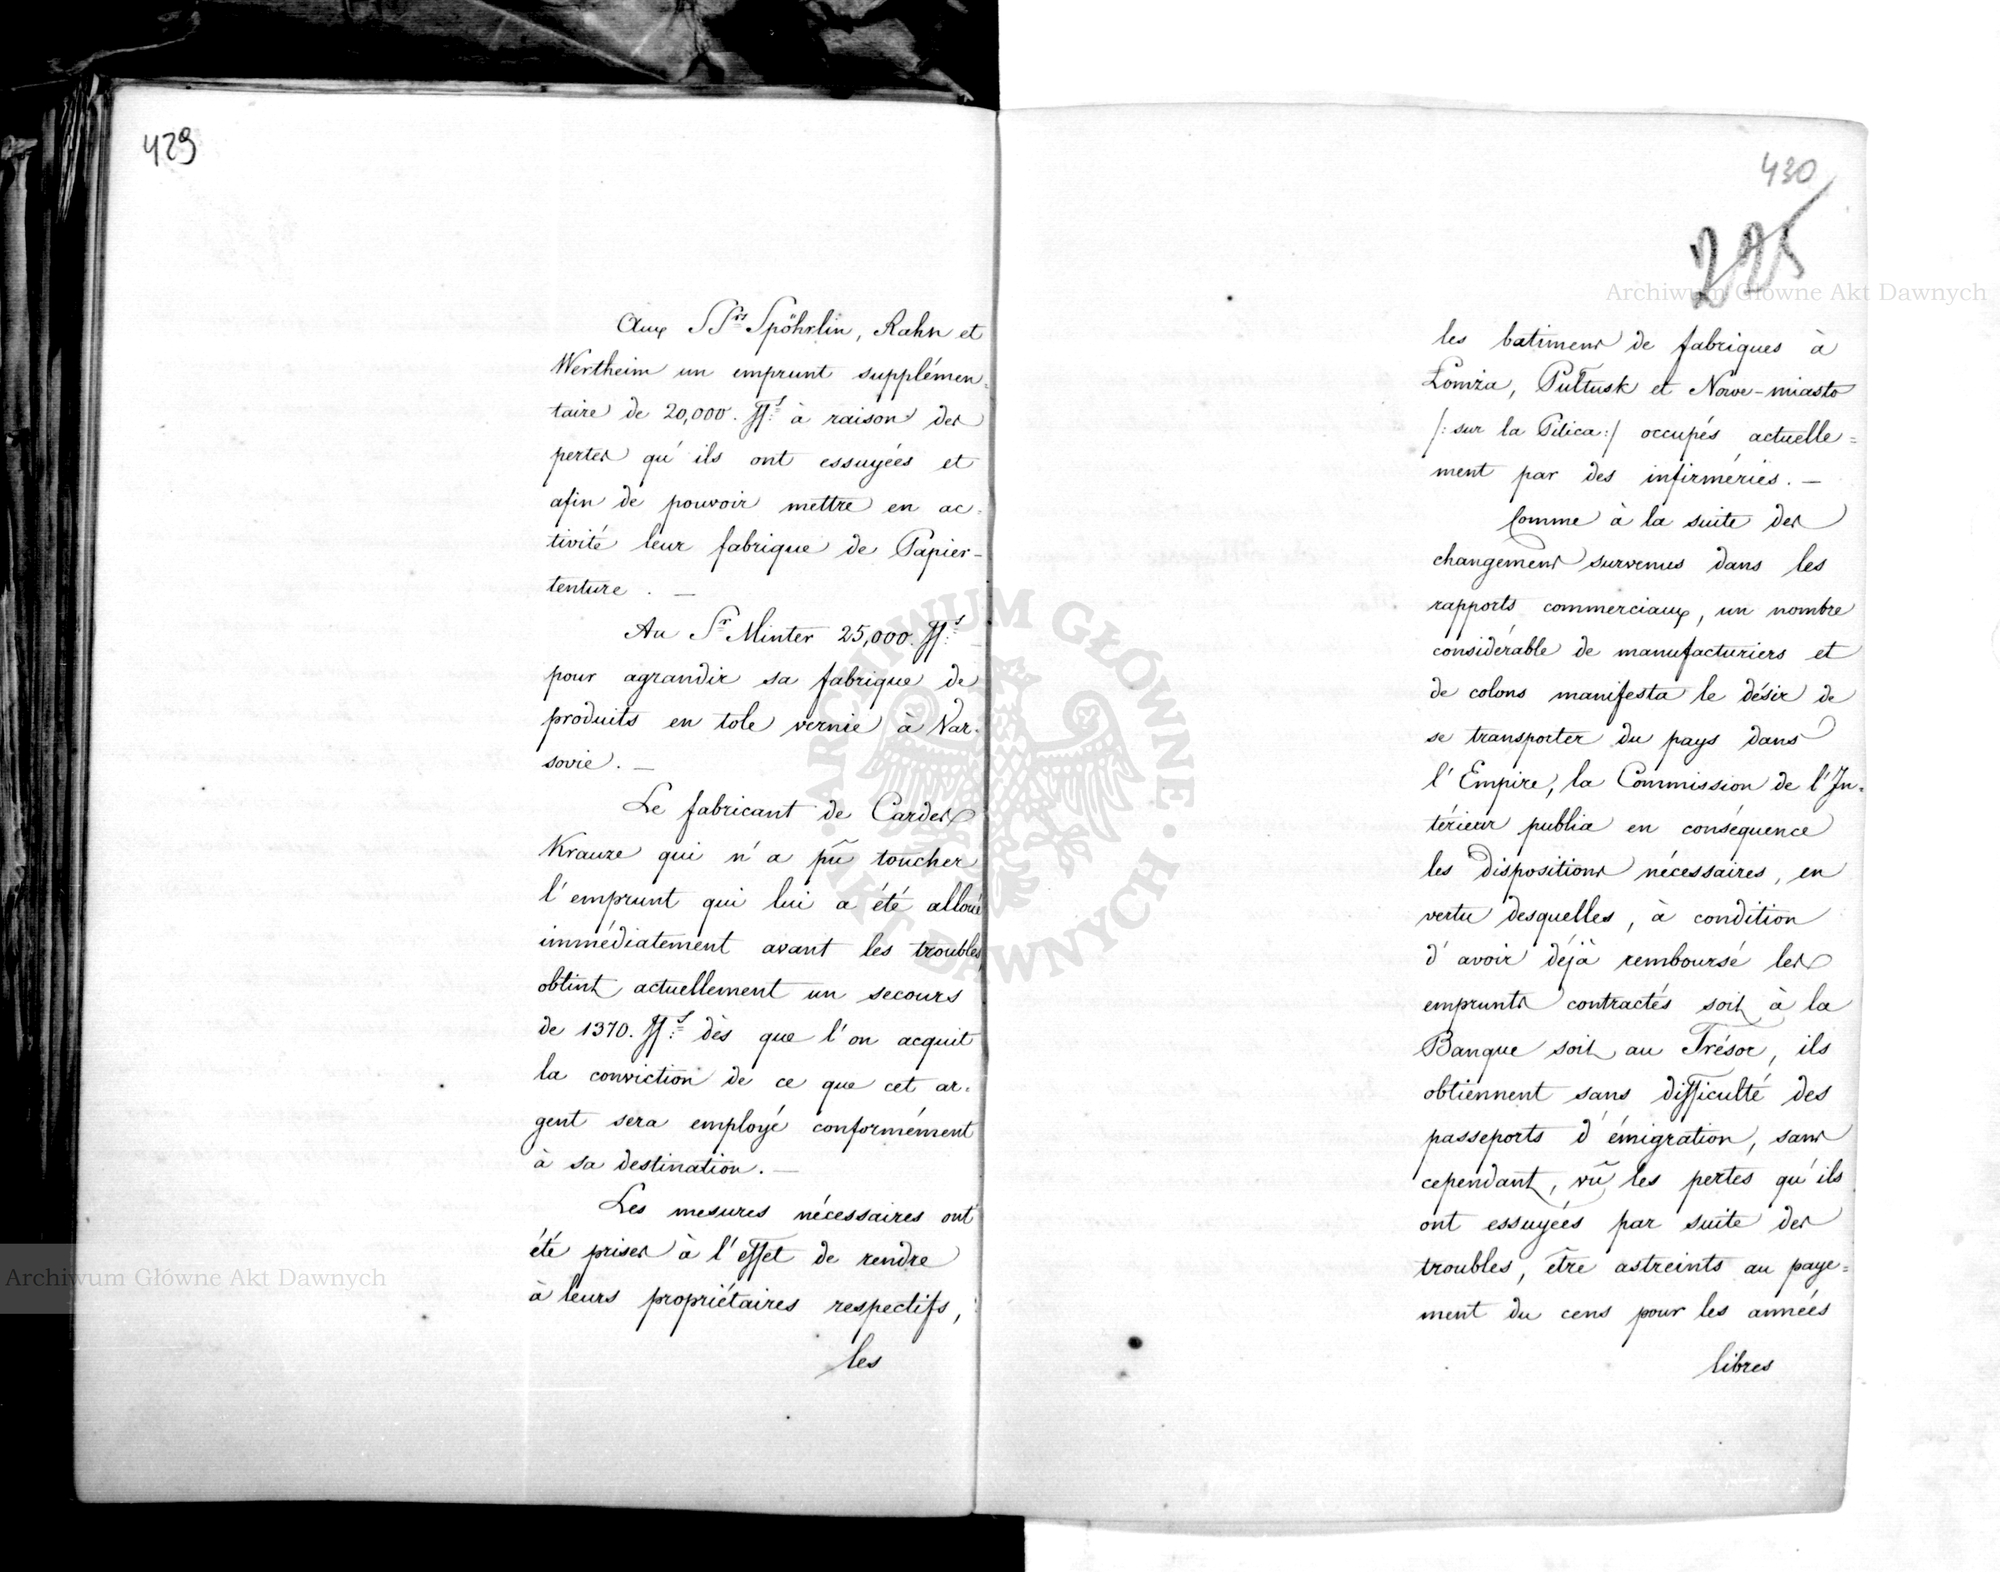 429
Aux SSrs Spöhrlin, Rahn et
Wertheim un emprunt supplémen-
taire de 20,000. ffs à raison des
pertes qu'ils ont essuyées et
afin de pouvoir mettre en ac-
tivité leur fabrique de Papier-
tenture. —
Au Sr Minter 25,000. ffs
pour agrandir sa fabrique de
produits en tole vernie à Var-
sovie. —
Le fabricant de Cardes
Krauze qui n'a pû toucher
l'emprunt qui lui a été alloué
immédiatement avant les troubles,
obtint actuellement un secours
de 1370. ffs dès que l'on acquit
la conviction de ce que cet ar-
gent sera employé conformément
à sa destination. —
Les mesures nécessaires ont
été prises à l'effet de rendre
à leurs propriétaires respectifs,
les
430
225
les batimens de fabriques à
Łomża, Pułtusk et Nowe-miasto
/: sur la Pilica :/ occupés actuelle=
ment par des infirméries. —
Comme à la suite des
changemens survenus dans les
rapports commerciaux, un nombre
considérable de manufacturiers et
de colons manifesta le désir de
se transporter du pays dans
l'Empire, la Commission de l'In-
térieur publia en conséquence
les dispositions nécessaires, en
vertu desquelles, à condition
d'avoir déjà remboursé les
emprunts contractés soit à la
Banque soit au Trésor, ils
obtiennent sans difficulté des
passeports d'émigration, sans
cependant, vû les pertes qu'ils
ont essuyées par suite des
troubles, être astreints au paye=
ment du cens pour les années
libres
Archiwum Główne Akt Dawnych
Archiwum Główne Akt Dawnych
ARCHIWUM GŁÓWNE · AKT DAWNYCH ·